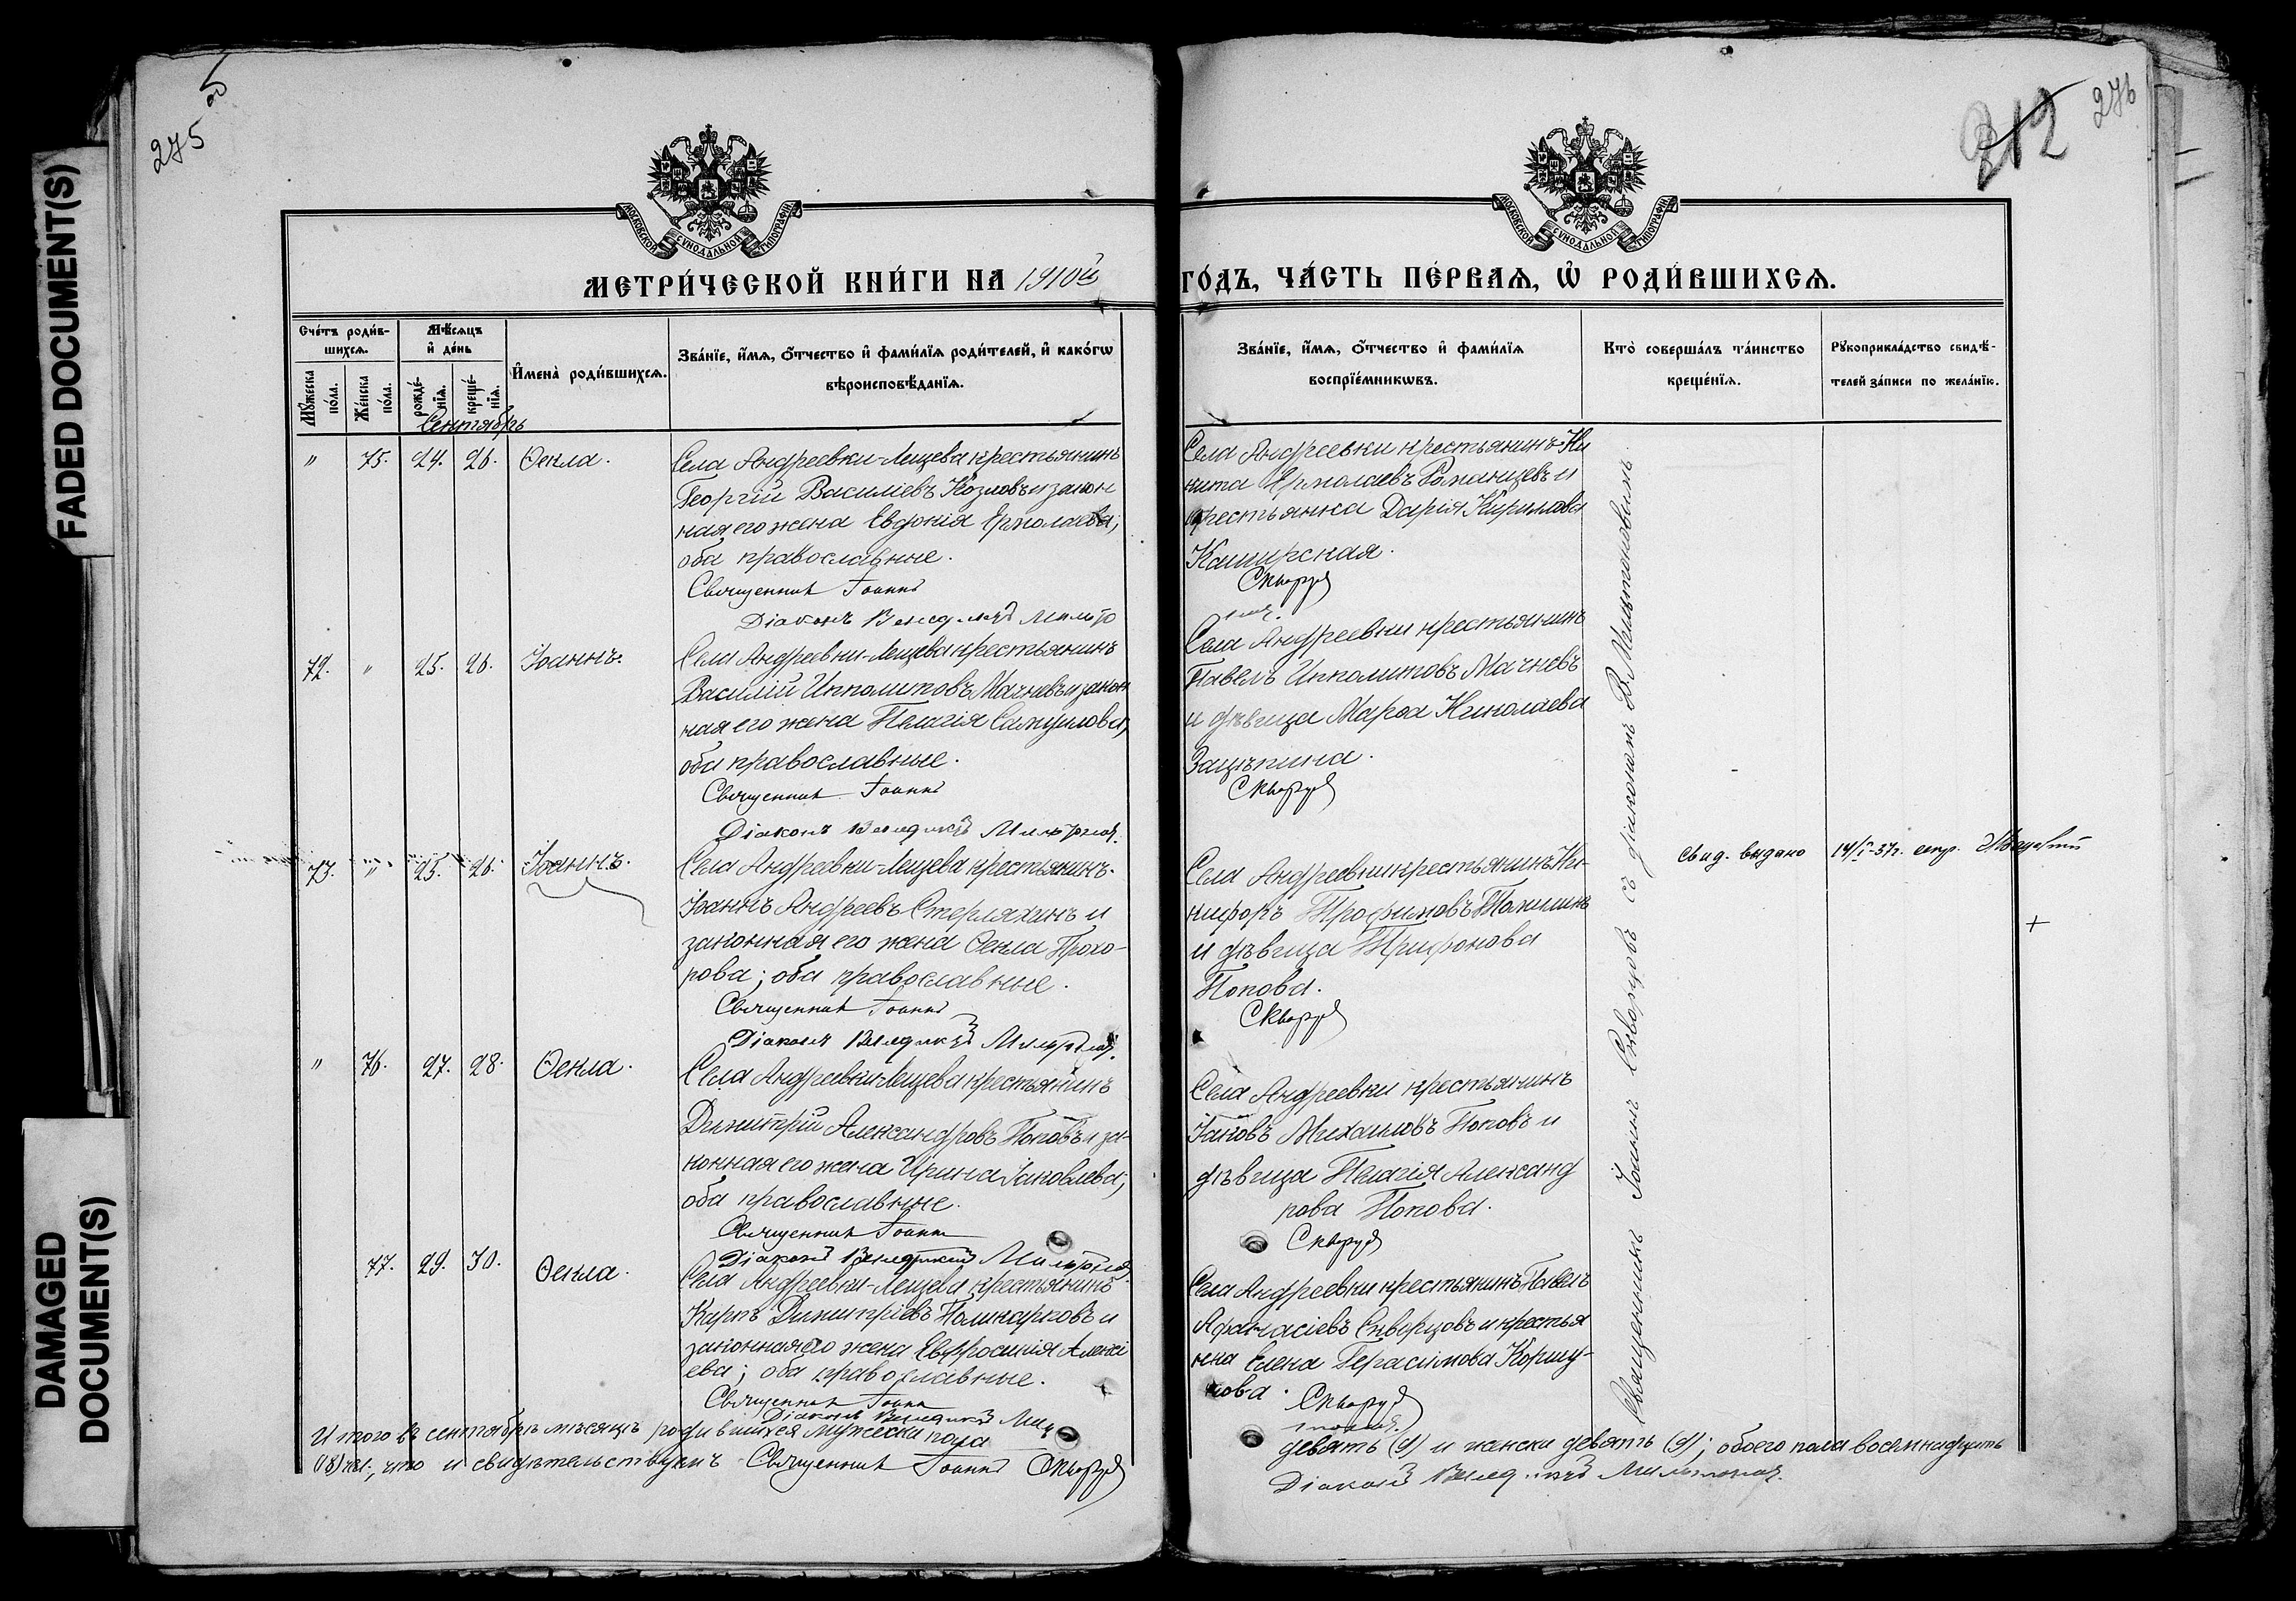 FADED DOCUMENT(S)
DAMAGED
DOCUMENT(S)
275
об
212
276
МОСКОВСКОЙ СѴНОДАЛЬНОЙ ТИПОГРАФІИ
МОСКОВСКОЙ СѴНОДАЛЬНОЙ ТИПОГРАФІИ
МЕТРИ́ЧЕСКОЙ КНИ́ГИ НА 1910й ГО́ДЪ, ЧА́СТЬ ПЕ́РВАѦ, Ѡ҆ РОДИ́ВШИХСѦ.
Сче́тъ роди́в-
шихсѧ.
Мꙋ́жеска
по́ла.
Же́нска
по́ла.
Мѣ́сѧцъ
и҆ де́нь
рожде́-
нїѧ.
креще́-
нїѧ.
И҆мена̀ роди́вшихсѧ.
Зва́нїе, и҆́мѧ, ѻ҆́тчество и҆ фами́лїѧ роди́телей, и҆ како́гѡ
вѣроисповѣ́данїѧ.
Зва́нїе, и҆́мѧ, ѻ҆́тчество и҆ фами́лїѧ
воспрїе́мникѡвъ.
Кто̀ соверша́лъ та́инство
креще́нїѧ.
Рꙋкоприкла́дство свидѣ́-
телей за́писи по жела́нїю.
Сентябрь
" 75. 24. 26. Ѳекла.
Села Андреевки-Лещева крестьянинъ
Георгій Василіевъ Козловъ и закон
ная его жена Евдокія Ермолаева;
оба православные.
Священникъ Іоаннъ
Діаконъ Венедиктъ Мильто
Села Андреевки крестьянинъ Ни
кита Ермолаевъ Романцевъ и
крестьянка Дарія Кирилова
Каширская.
Скворцо
72. " 25. 26. Іоаннъ.
Села Андреевки-Лещева крестьянинъ
Василій Ипполитовъ Мачневъ и закон
ная его жена Пелагія Самуилова;
оба православные.
Священникъ Іоаннъ
Діаконъ Венедиктъ Мильтонов.
Села Андреевки крестьянинъ
Павелъ Ипполитовъ Мачневъ
и дѣвица Марѳа Николаева
Зацѣпина.
Скворцо
73. " 25. 26. Іоаннъ.
Села Андреевки-Лещева крестьянинъ
Іоаннъ Андреевъ Стерляхинъ и
законная его жена Ѳекла Прохо-
рова; оба православные.
Священникъ Іоаннъ
Діаконъ Венедиктъ Мильтонов.
Села Андреевки крестьянинъ Ни-
кифоръ Трофимовъ
и дѣвица Трифонова
Попова.
Скворцо
свид. выдано 14/I-37г. секр.
" 76. 27. 28. Ѳекла.
Села Андреевки-Лещева крестьянинъ
Димитрій Александровъ Поповъ и за-
конная его жена Ирина Іаковлева;
оба православные.
Священникъ Іоанн
Діаконъ Венедиктъ Мильтонов.
Села Андреевки крестьянинъ
Іаковъ Михаиловъ Поповъ и
дѣвица Пелагія Александ
рова Попова.
Скворцо
77. 29. 30. Ѳекла.
Села Андреевки-Лещева крестьянинъ
Карпъ Димитріевъ Поликарповъ и
законная его жена Евфросинія Алексі
ева; оба православные.
Священникъ Іоанн
Діаконъ Венедиктъ Мил
Села Андреевки крестьянинъ Павелъ
Афанасіевъ Скверцовъ и крестья
нка Елена Герасимова Коршу-
нова.
Скворцо
Священникъ Іоаннъ Скворцовъ съ діакономъ В. Мильтоновымъ.
Итого въ сентябрѣ мѣсяцѣ родившихся мужеска пола девять (9) и женска девять (9); обоего пола восемнадцать
(18) чел., что и свидѣтельствуемъ Священникъ Іоаннъ Скворцо
Діаконъ Венедиктъ Мильтонов.